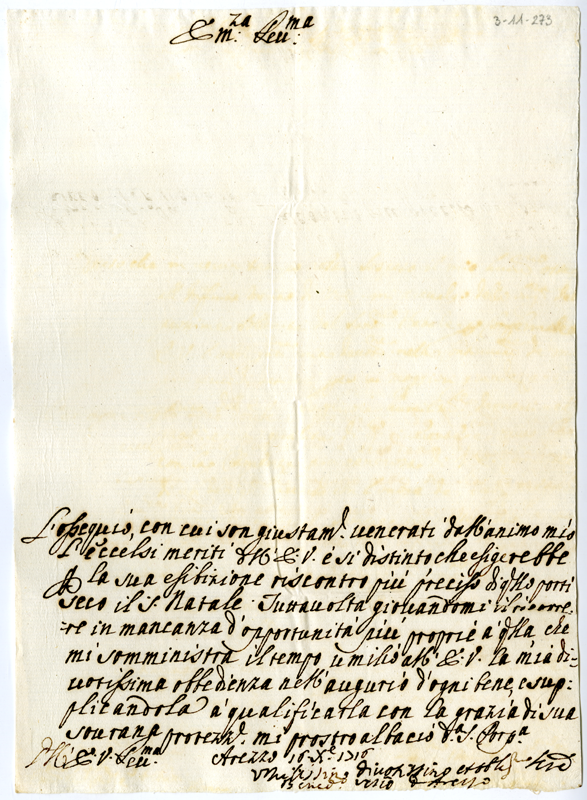 3-11-273
Em:za Reu:ma
L'ossequio, con cui son giustam.e uenerati dall'animo mio
l'eccelsi meriti dell'E.V. è si distinto che esigerebbe
p la sua esibizione riscontro più preciso di qllo porti
seco il S. Natale. Tuttauolta giouandomi il ricorre-
re in mancanza d'opportunità più proprie à qlla che
mi somministra il tempo umilio all'E.V. la mia di-
uotissima obbedienza nell'augurio d'ogni bene, e sup-
plicandola à qualificarla con la grazia di sua
sourana protezz.e mi prostro al bacio d.a S. Porp.a
Dell'E.V. Reu.ma Arezzo 16 Xbre 1716
Vmilissimo Diuotissimo et obblig
Bened. Vesco d'Arezzo